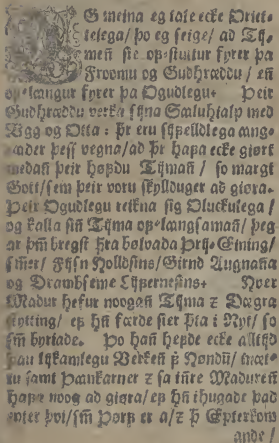 EG meina eg tale ecke Oriet-
telega/ þo eg seige/ ad Tij-
men sie op-stuttur fyrer þa
Froomu og Gudhræddu/ en
op-langur fyrer þa Ogudlegu. Þeir
Gudhræddu verka sijna Sæluhialp med
Ugg og Otta: Þr eru sijpelldlega angr-
ader þess vegna/ ad þr hafa ecke giørt
medan þeir høfdu Tijman/ so margt
Gott/ sem þeir voru skylduger ad giøra.
Þeir Ogudlegu reikna sig Oluckulega/
og kalla sin Tijma op-langsaman/ þeg
ar þm bregst þta bølvada Þrij-Eining/
Fijsn Holldsins/ Girnd Augnana
og Drambseme Lijfernesins. Hver
Madur hefur noogan Tijma z Dægra
stytting/ ef hn færde sier þta i Nyt/ so
sm byriade. Þo han hefde ecke alltijd
þau lijkamlegu Verken fyrer Høndum/
samt Þankarner z sa inre Maduren
hafa noog ad giøra/ ef hn ihugade þad
epter þvi/ sm Þørf er a/ z
ande/